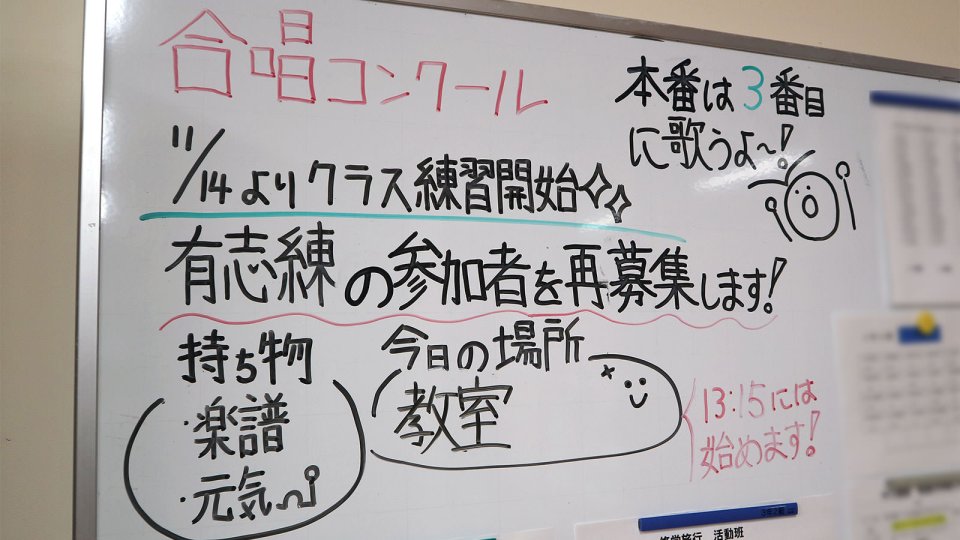 合唱コンクール
本番は3番目
に歌うよ~!
11/14よりクラス練習開始
有志練の参加者を再募集します!
持ち物
・楽譜
・元気
今日の場所
教室
13:15には
始めます!
修学旅行 活動班